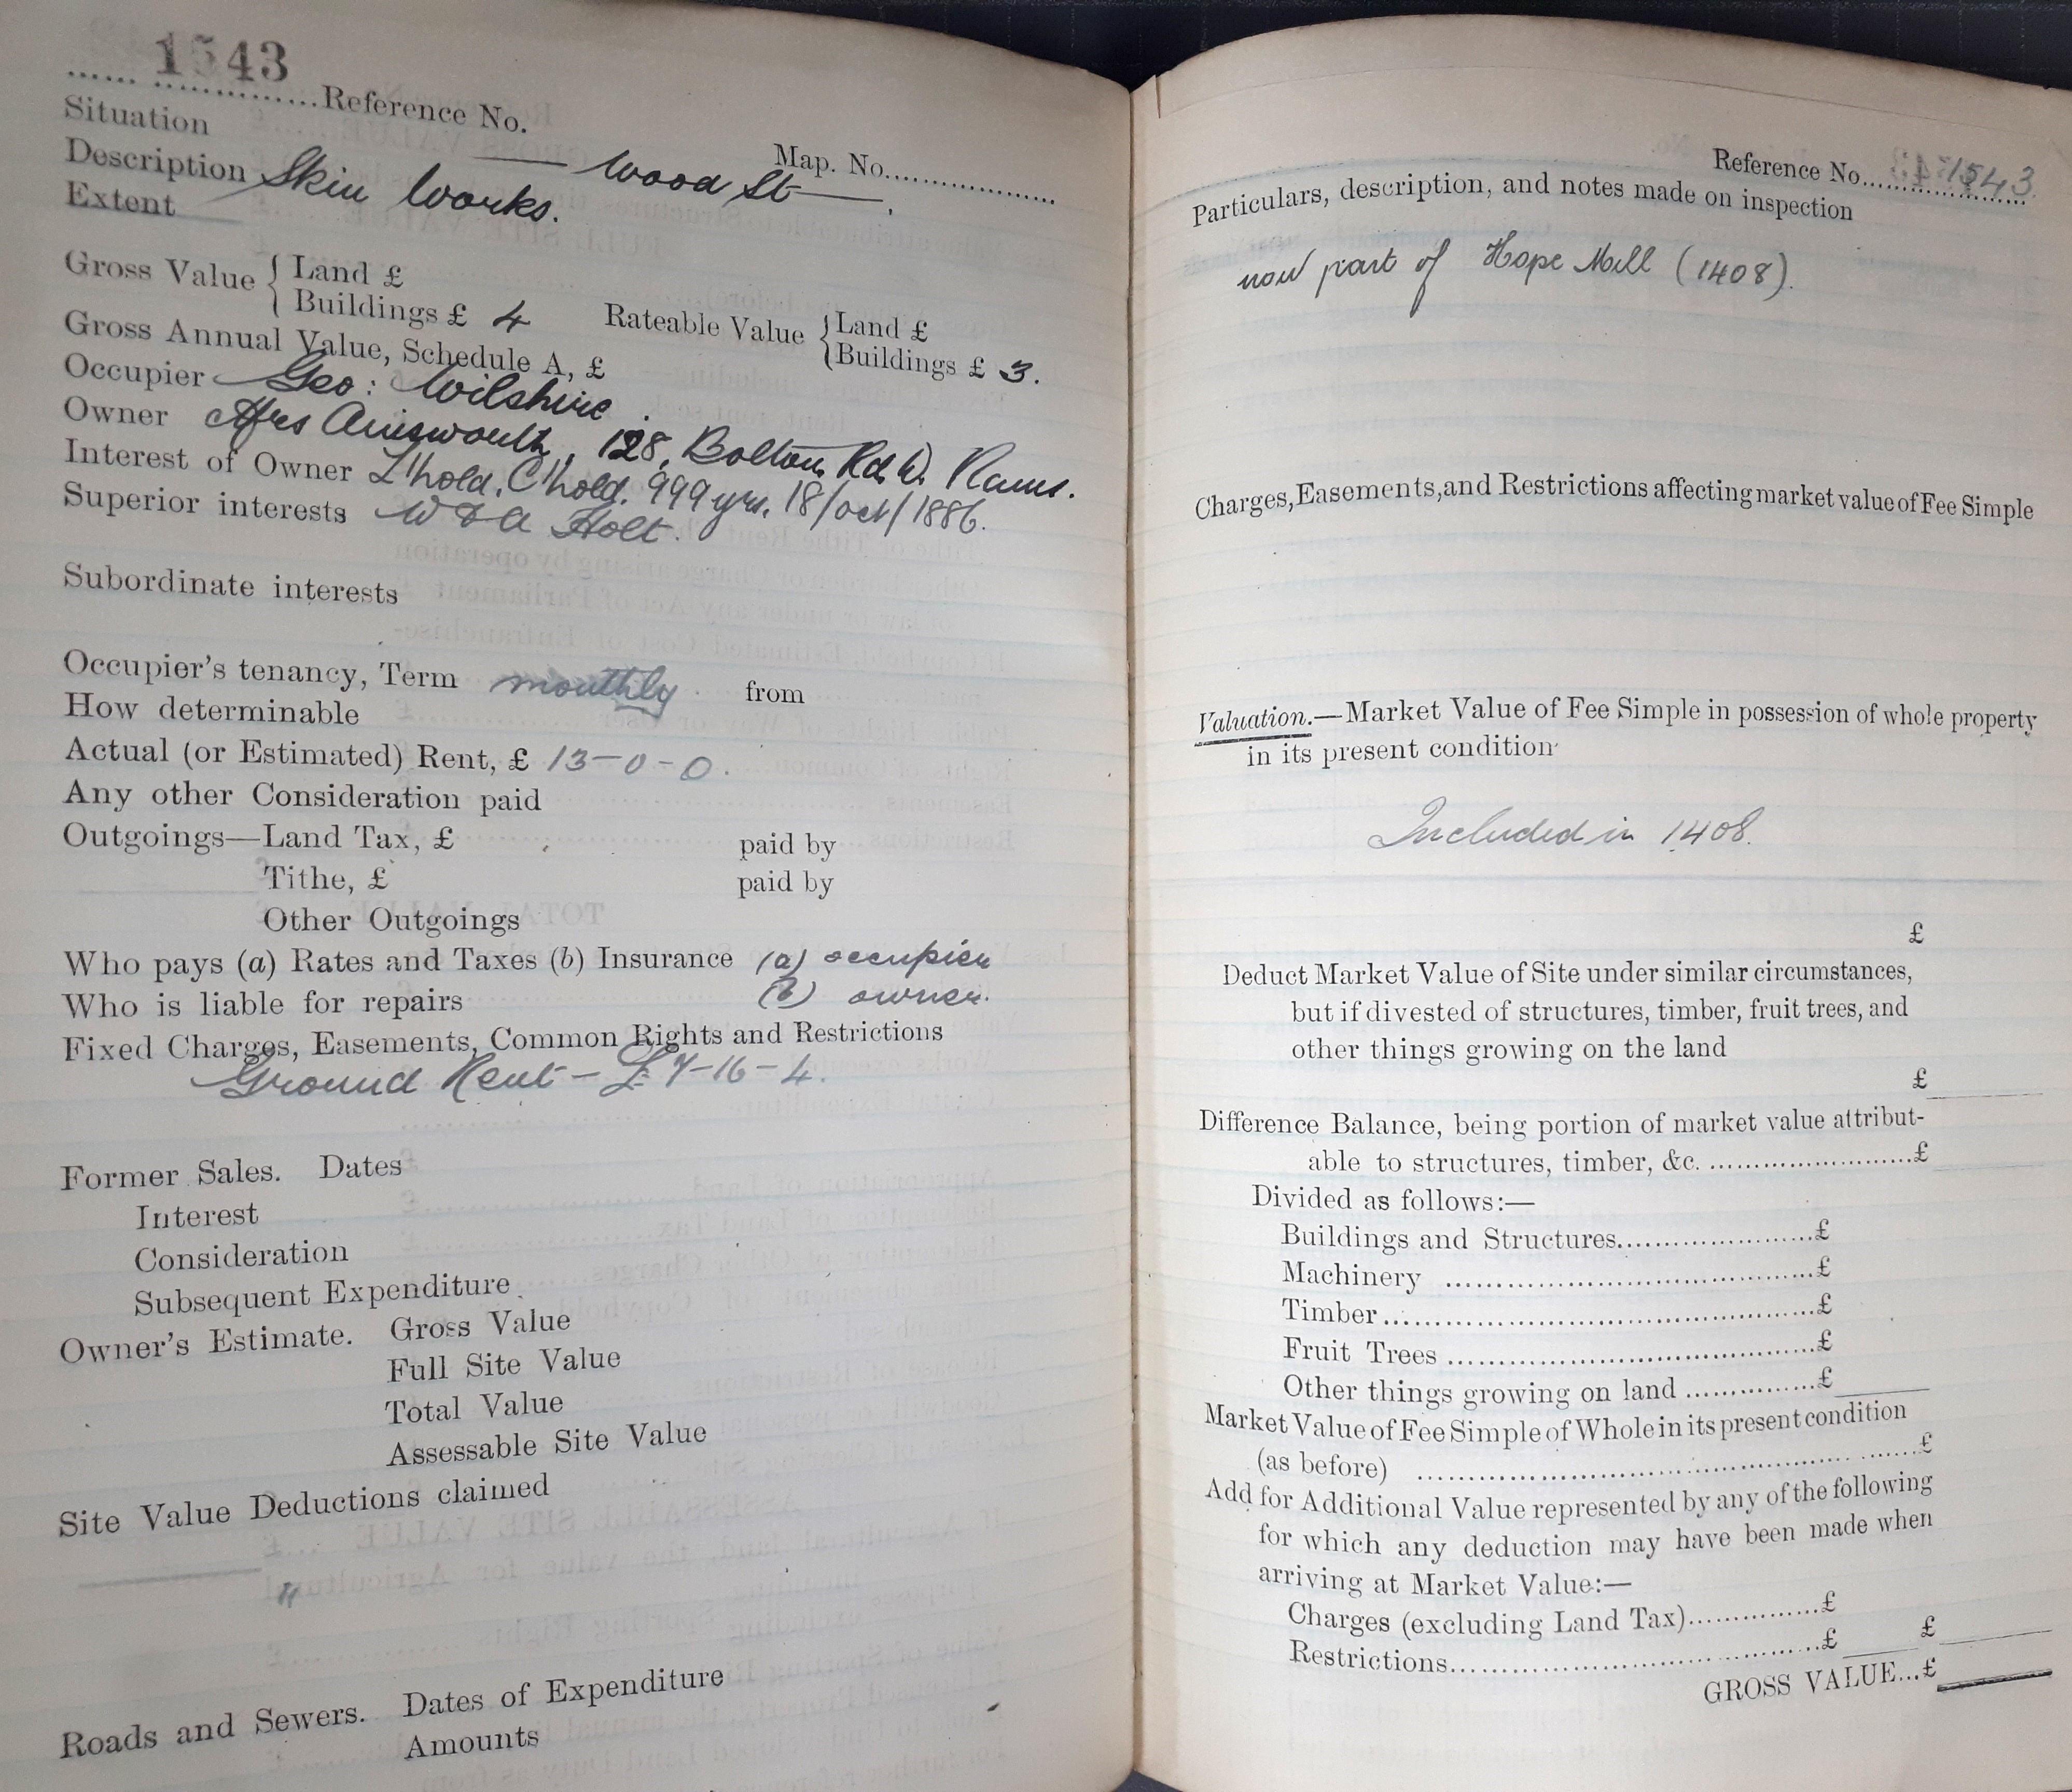 1543
...... ................Reference No.
Map. No..................
Situation —— Wood St ——.
Description Skin Works.
Extent
Gross Value { Land £
Buildings £ 4
Rateable Value { Land £
Buildings £ 3.
Gross Annual Value, Schedule A, £
Occupier Geo: Wilshire.
Owner Mrs Ainsworth, 128, Bolton Rd W. Rams.
Interest of Owner L'hold, C'hold. 999 yrs. 18/oct/1886.
Superior interests W & A Holt.
Subordinate interests
Occupier's tenancy, Term monthly from
How determinable
Actual (or Estimated) Rent, £ 13-0-0.
Any other Consideration paid
Outgoings—Land Tax, £ paid by
Tithe, £ paid by
Other Outgoings
Who pays (a) Rates and Taxes (b) Insurance (a) occupier
Who is liable for repairs (b) owner.
Fixed Charges, Easements, Common Rights and Restrictions
Ground Rent - £7-16-4.
Former Sales. Dates
Interest
Consideration
Subsequent Expenditure
Owner's Estimate. Gross Value
Full Site Value
Total Value
Assessable Site Value
Site Value Deductions claimed
Roads and Sewers. Dates of Expenditure
Amounts
Reference No. 1543
Particulars, description, and notes made on inspection
now part of Hope Mill (1408).
Charges, Easements, and Restrictions affecting market value of Fee Simple
Valuation.—Market Value of Fee Simple in possession of whole property
in its present condition
Included in 1408.
£
Deduct Market Value of Site under similar circumstances,
but if divested of structures, timber, fruit trees, and
other things growing on the land
£
Difference Balance, being portion of market value attribut-
able to structures, timber, &c. ........................£
Divided as follows:—
Buildings and Structures.......................£
Machinery ...........................................£
Timber..................................................£
Fruit Trees ...........................................£
Other things growing on land ...............£
Market Value of Fee Simple of Whole in its present condition
(as before) ..................................................£
Add for Additional Value represented by any of the following
for which any deduction may have been made when
arriving at Market Value:—
Charges (excluding Land Tax)...............£
Restrictions...........................................£ £
GROSS VALUE...£